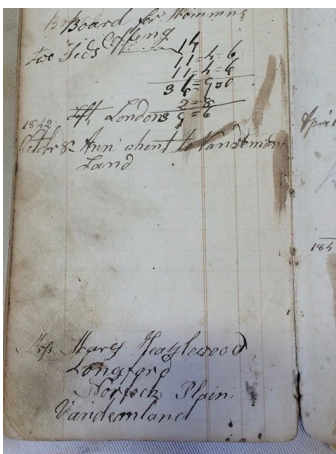 Board for Trimming
two Lids Coffing
14
11 = 4 = 6
11 = 4 = 6
2 = 8
Left London
1842
Octobr 8 Ann went to Vandemon
Land
Mrs Mary Heaylewood
Longford
Norfock Plain
Vandemland
184